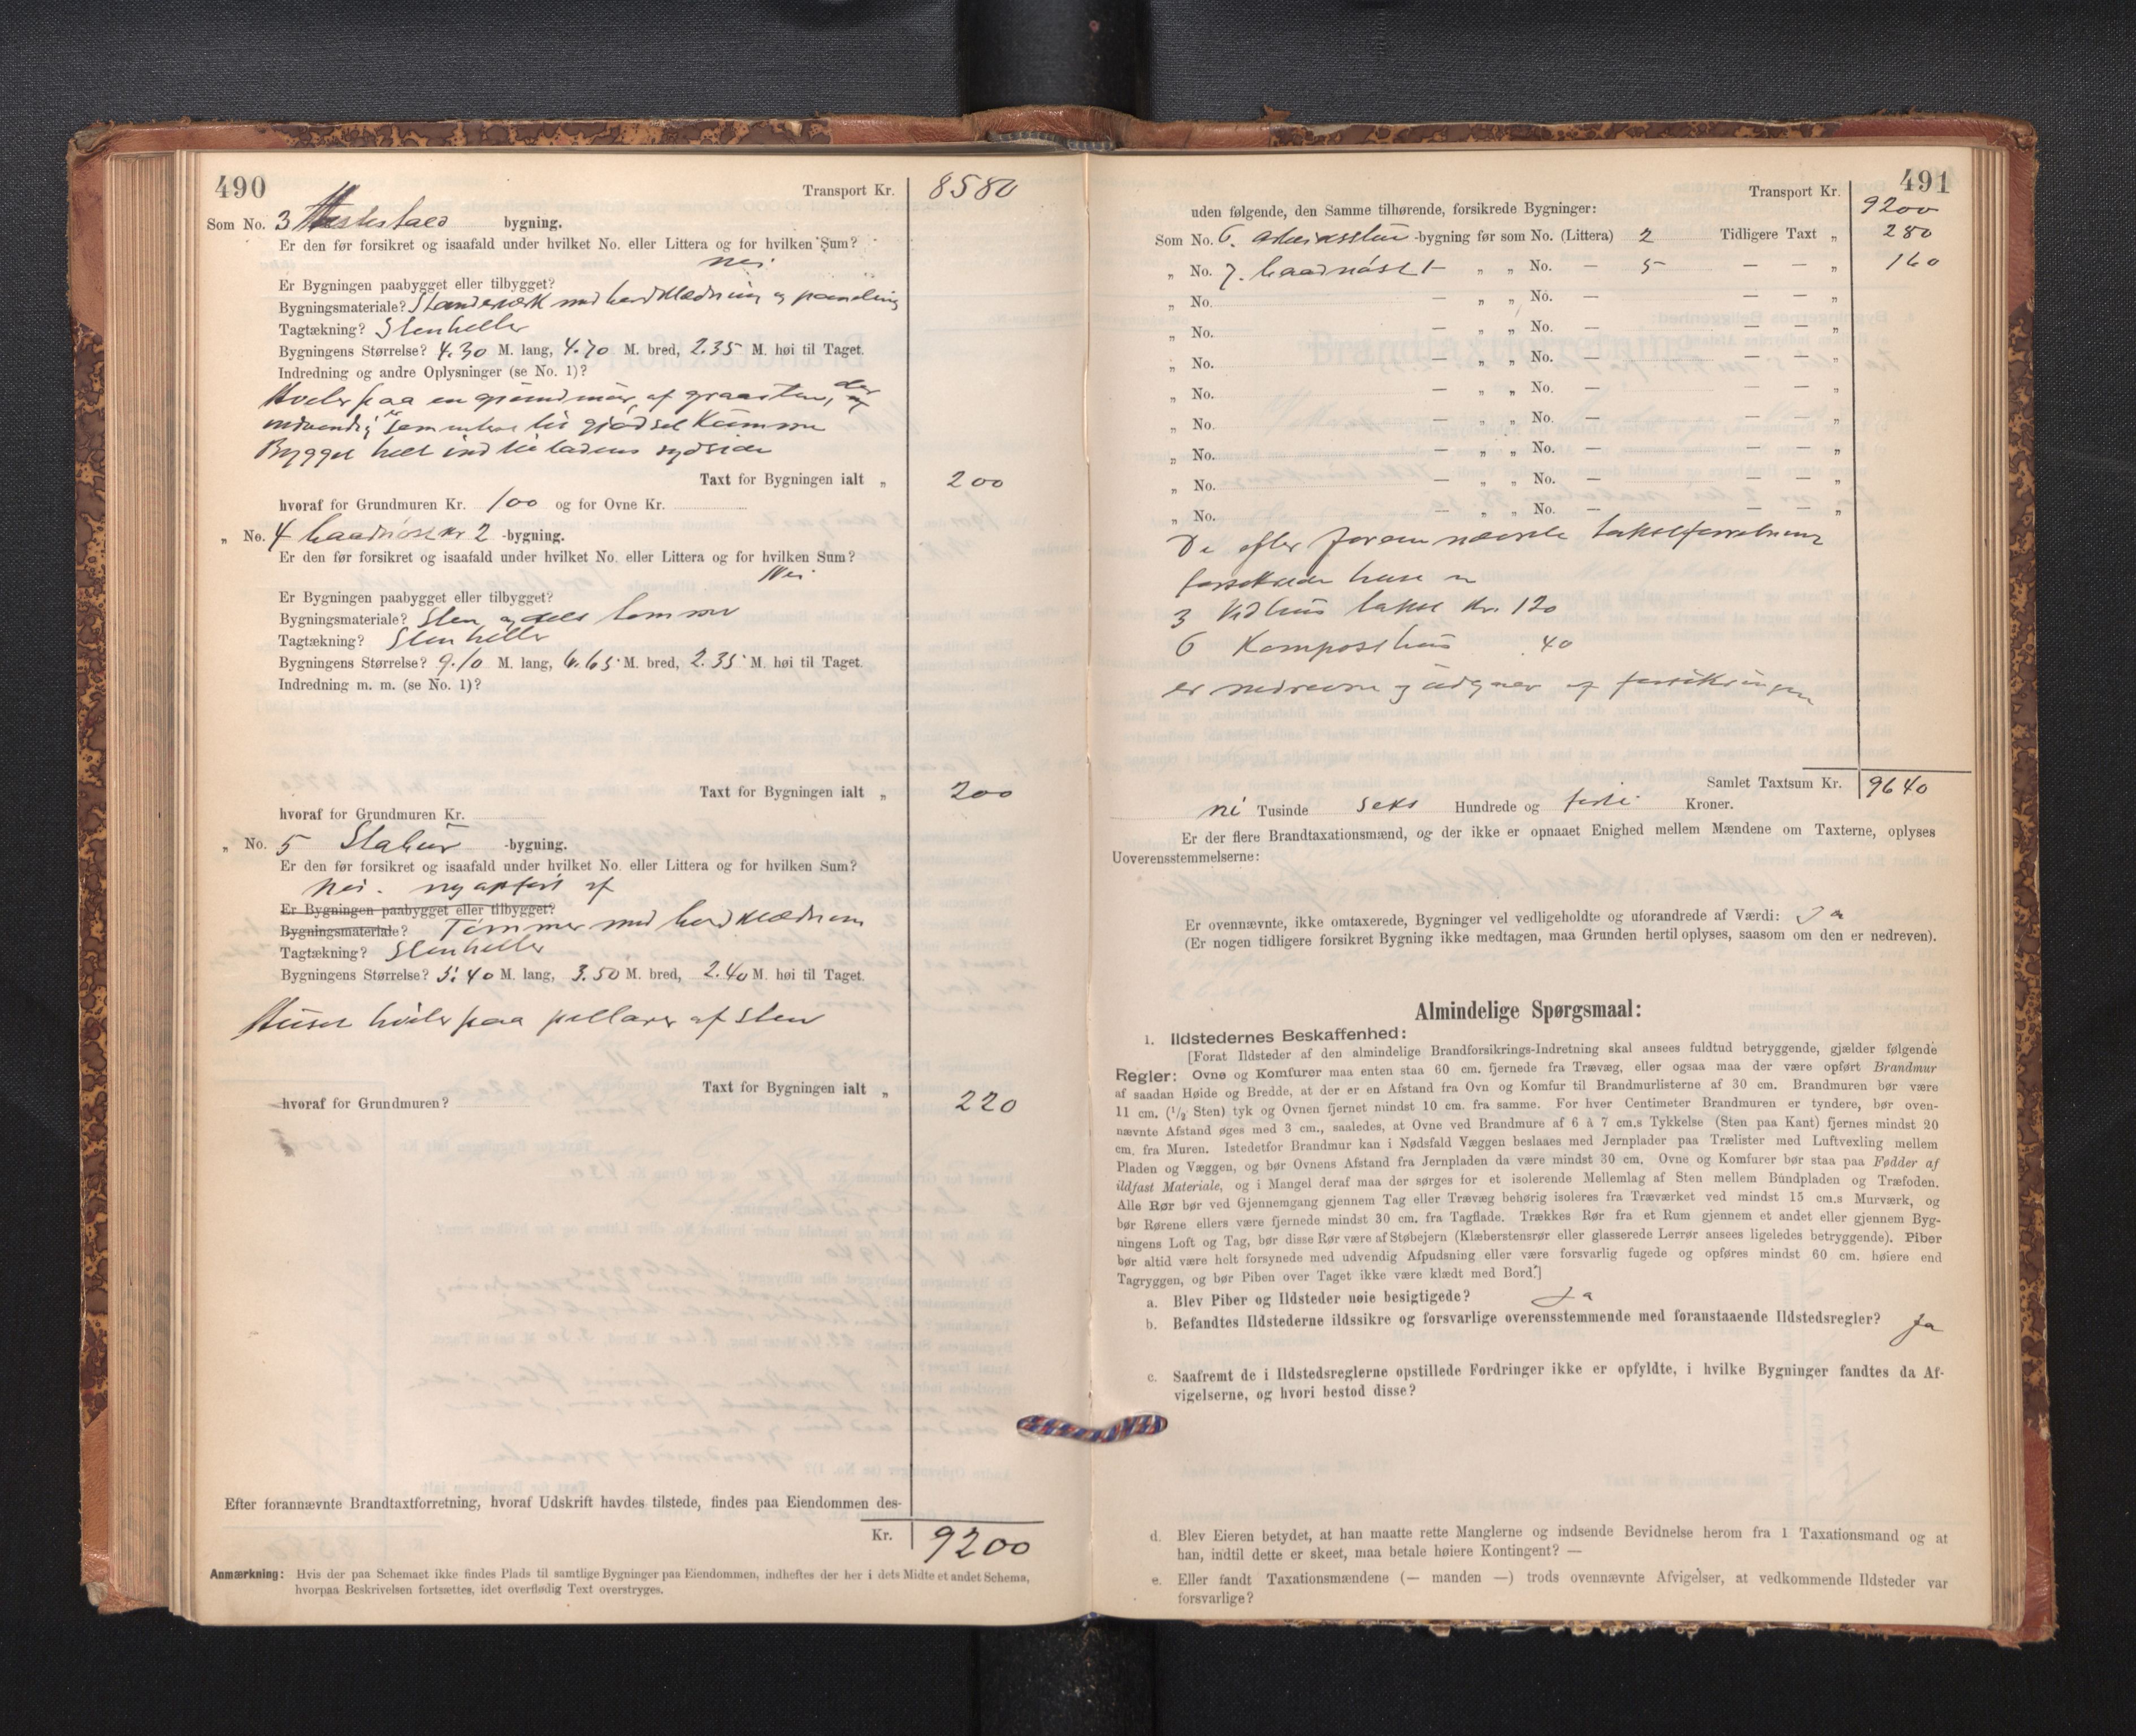 490
Transport Kr. 8580
Som No. 3 Hestestald bygning.
Er den før forsikret og isaafald under hvilket No. eller Littera og for hvilken Sum?
nei
Er Bygningen paabygget eller tilbygget?
Bygningsmateriale? Standerværk med bordklædning og paneling
Tagtækning? Stenheller
Bygningens Størrelse? 4.30 M. lang, 4.70 M. bred, 2.35 M. høi til Taget.
Indredning og andre Oplysninger (se No. 1)?
Hviler paa en grundmur af graasten, der
indvendig er til gjødsel Kummer
Bygget helt ind til ladens sydside
Taxt for Bygningen ialt „ 200
hvoraf for Grundmuren Kr. 100 og for Ovne Kr.
„ No. 4 baadnøst nr 2 -bygning.
Er den før forsikret og isaafald under hvilket No. eller Littera og for hvilken Sum?
Nei
Er Bygningen paabygget eller tilbygget?
Bygningsmateriale? Sten og dels tømmer
Tagtækning? Stenheller
Bygningens Størrelse? 9.10 M. lang, 6.65 M. bred, 2.35 M. høi til Taget.
Indredning m. m. (se No. 1)?
Taxt for Bygningen ialt „ 200
hvoraf for Grundmuren Kr.
„ No. 5 Stabur -bygning.
Er den før forsikret og isaafald under hvilket No. eller Littera og for hvilken Sum?
Nei. ny opført af
Er Bygningen paabygget eller tilbygget?
Bygningsmateriale? Tømmer med bordklædning
Tagtækning? Stenheller
Bygningens Størrelse? 5.40 M. lang, 3.50 M. bred, 2.40 M. høi til Taget.
Huset hviler paa pillarer af sten
Taxt for Bygningen ialt „ 220
hvoraf for Grundmuren?
Efter forannævnte Brandtaxtforretning, hvoraf Udskrift havdes tilstede, findes paa Eiendommen des-
Kr. 9200
Anmærkning: Hvis der paa Schemaet ikke findes Plads til samtlige Bygninger paa Eiendommen, indheftes der her i dets Midte et andet Schema,
hvorpaa Beskrivelsen fortsættes, idet overflødig Text overstryges.
491
Transport Kr. 9200
uden følgende, den Samme tilhørende, forsikrede Bygninger:
Som No. 6. Arbeidsstue -bygning før som No. (Littera) 2 Tidligere Taxt „ 280
„ No. 7. baadnøst 1 — „ „ No. — 5 — — „ 160
„ No. — „ „ No. — — — „
„ No. — „ „ No. — — — „
„ No. — „ „ No. — — — „
„ No. — „ „ No. — — — „
„ No. — „ „ No. — — — „
„ No. — „ „ No. — — — „
„ No. — „ „ No. — — — „
„ No. — „ „ No. — — — „
De efter forannævnte takstforretning
forsikrede huse n
3 Vedhus takst Kr. 120
6 Komposthus . 40
er nedrevne og udgaar af forsikringen
Samlet Taxtsum Kr. 9640
ni Tusinde seks Hundrede og forti Kroner.
Er der flere Brandtaxationsmænd, og der ikke er opnaaet Enighed mellem Mændene om Taxterne, oplyses
Uoverensstemmelserne:
Er ovennævnte, ikke omtaxerede, Bygninger vel vedligeholdte og uforandrede af Værdi: Ja
(Er nogen tidligere forsikret Bygning ikke medtagen, maa Grunden hertil oplyses, saasom om den er nedreven).
Almindelige Spørgsmaal:
1. Ildstedernes Beskaffenhed:
[Forat Ildsteder af den almindelige Brandforsikrings-Indretning skal ansees fuldtud betryggende, gjælder følgende
Regler: Ovne og Komfurer maa enten staa 60 cm. fjernede fra Trævæg, eller ogsaa maa der være opført Brandmur
af saadan Høide og Bredde, at der er en Afstand fra Ovn og Komfur til Brandmurlisterne af 30 cm. Brandmuren bør være
11 cm. (1/2 Sten) tyk og Ovnen fjernet mindst 10 cm. fra samme. For hver Centimeter Brandmuren er tyndere, bør oven-
nævnte Afstand øges med 3 cm., saaledes, at Ovne ved Brandmure af 6 à 7 cm.s Tykkelse (Sten paa Kant) fjernes mindst 20
cm. fra Muren. Istedetfor Brandmur kan i Nødsfald Væggen beslaaes med Jernplader paa Trælister med Luftvexling mellem
Pladen og Væggen, og bør Ovnens Afstand fra Jernpladen da være mindst 30 cm. Ovne og Komfurer bør staa paa Fødder af
ildfast Materiale, og i Mangel deraf maa der sørges for et isolerende Mellemlag af Sten mellem Bundpladen og Træfoden.
Alle Rør bør ved Gjennemgang gjennem Tag eller Trævæg behørig isoleres fra Træværket ved mindst 15 cm.s Murværk, og
bør Rørene ellers være fjernede mindst 30 cm. fra Tagflade. Trækkes Rør fra et Rum gjennem et andet eller gjennem Byg-
ningens Loft og Tag, bør disse Rør være af Støbejern (Klæberstensrør eller glasserede Lerrør ansees ligeledes betryggende). Piber
bør altid være helt forsynede med udvendig Afpudsning eller være forsvarlig fugede og opføres mindst 60 cm. høiere end
Tagryggen, og bør Piben over Taget ikke være klædt med Bord.]
a. Blev Piber og Ildsteder nøie besigtigede? Ja
b. Befandtes Ildstederne ildssikre og forsvarlige overensstemmende med foranstaaende Ildstedsregler? Ja
c. Saafremt de i Ildstedsreglerne opstillede Fordringer ikke er opfyldte, i hvilke Bygninger fandtes da Af-
vigelserne, og hvori bestod disse?
d. Blev Eieren betydet, at han maatte rette Manglerne og indsende Bevidnelse herom fra 1 Taxationsmand og at
han, indtil dette er skeet, maa betale høiere Kontingent? —
e. Eller fandt Taxationsmændene (— manden —) trods ovennævnte Afvigelser, at vedkommende Ildsteder var
forsvarlige?